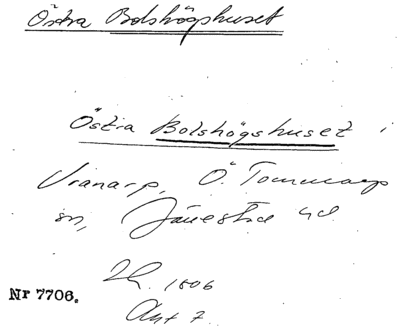 Östra Bolshögshuset
Östra Bolshögshuset i
Vranarp, Ö. Tommarp
sn, Järrestad hd
1806
Nr 7706.
Akt 7